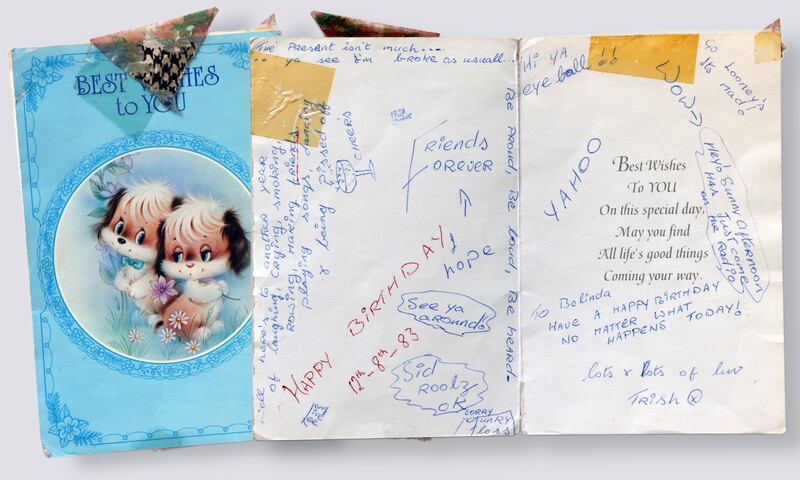 BEST WISHES
to YOU
The Present isn't much....
.. ya see I'm broke as usuall...
Well here's to another year
of laughing, crying, smoking,
rowing, making friends,
playing songs, dancing
& being pissed off
CHEERS
FRIENDS
FOREVER
I
hope
HAPPY BIRTHDAY
12th-8th-83
See ya
around!
Sid
Roolz
OK
SORRY
Junky
Floss
Be proud, Be loud, Be heard-
Hi YA
eye ball !!
WOW→
Go Looney's
its mad!
YAHOO
Heyo Sunny Afternoon
HAS JUST come
on the Radio
Best Wishes
To YOU
On this special day,
May you find
All life's good things
Coming your way.
To Belinda
HAVE A HAPPY BIRTHDAY
NO MATTER WHAT
HAPPENS TODAY!
lots & lots of luv
Trish